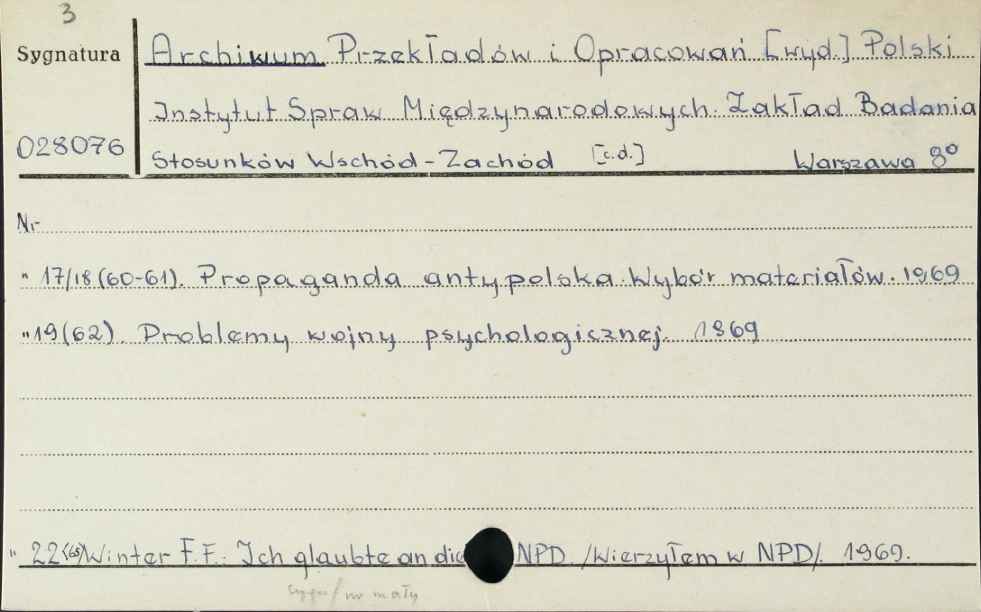 3
Sygnatura
Archiwum Przekładów i Opracowań [wyd.] Polski
Instytut Spraw Międzynarodowych. Zakład Badania
028076
Stosunków Wschód-Zachód [c.d.] Warszawa 8°
Nr
" 17/18 (60-61). Propaganda antypolska. Wybór materiałów. 1969
" 19 (62). Problemy wojny psychologicznej. 1969
" 22 (65) Winter F.F.: Ich glaubte an die NPD. /Wierzyłem w NPD/. 1969.
mały